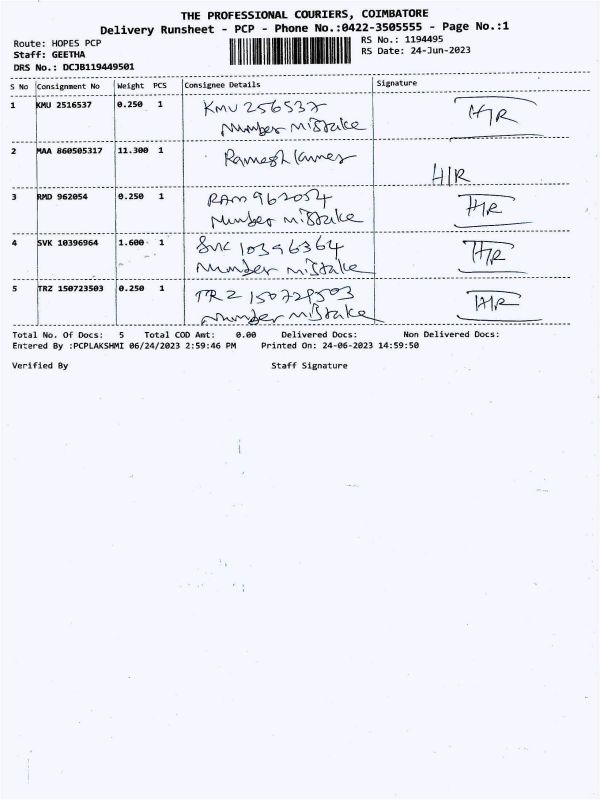 THE PROFESSIONAL COURIERS, COIMBATORE
Delivery Runsheet - PCP - Phone No.:0422-3505555 - Page No.:1
Route: HOPES PCP
Staff: GEETHA
DRS No.: DCJB119449501
RS No.: 1194495
RS Date: 24-Jun-2023
S No Consignment No Weight PCS Consignee Details Signature
1 KMU 2516537 0.250 1 KMU 256537 H/R
Number Mistake
2 MAA 860505317 11.300 1 Ramesh H/R
3 RMD 962054 0.250 1 RAM 962054 H/R
Number Mistake
4 SVK 10396964 1.600 1 SVK 10396364 H/R
Number Mistake
5 TRZ 150723503 0.250 1 TRZ H/R
Number Mistake
Total No. Of Docs: 5 Total COD Amt: 0.00 Delivered Docs: Non Delivered Docs:
Entered By :PCPLAKSHMI 06/24/2023 2:59:46 PM Printed On: 24-06-2023 14:59:50
Verified By Staff Signature